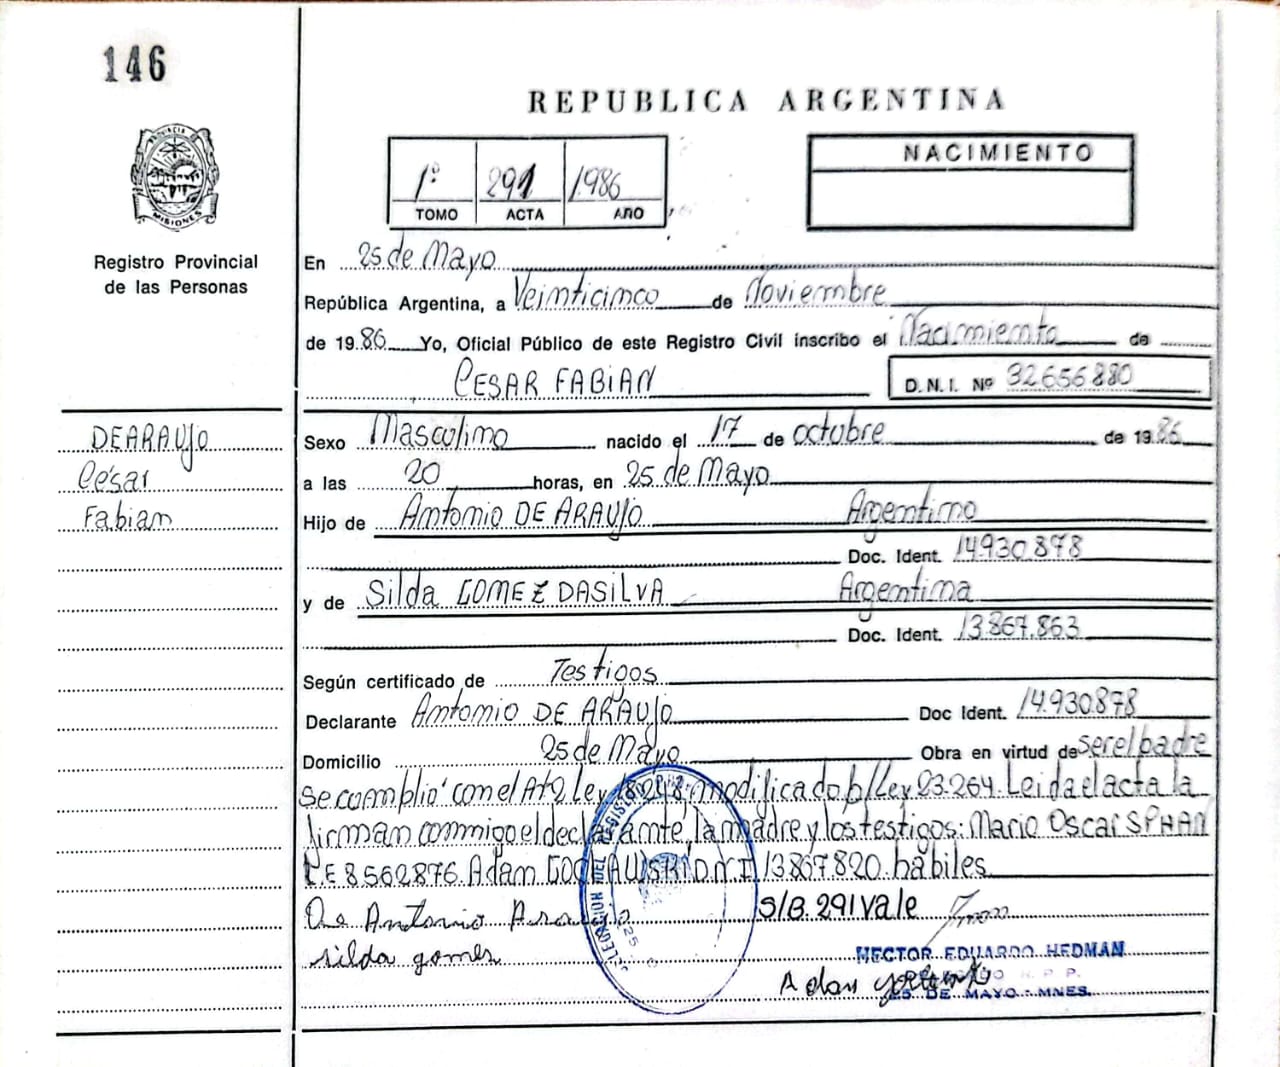 146
REPUBLICA ARGENTINA
PROVINCIA DE
MISIONES
Registro Provincial
de las Personas
1º 291 1986
TOMO ACTA AÑO
NACIMIENTO
En 25 de Mayo
República Argentina, a Veinticinco de Noviembre
de 1986 Yo, Oficial Público de este Registro Civil inscribo el Nacimiento de
CESAR FABIAN
D.N.I. Nº 32656880
DEARAUJO
César
Fabian
Sexo Masculino nacido el 17 de octubre de 1986
a las 20 horas, en 25 de Mayo
Hijo de Antonio DE ARAUJO Argentino
Doc. Ident. 14.930.878
y de Silda GOMEZ DASILVA Argentina
Doc. Ident. 13.867.863
Según certificado de Testigos
Declarante Antonio DE ARAUJO Doc Ident. 14.930.878
Domicilio 25 de Mayo Obra en virtud de ser el padre
se cumplió con el Art 2 Ley 18248 modificado p/Ley 23.264. Leida el acta la
firman conmigo el declarante, la madre y los testigos: Mario Oscar SPHAN
L E 8562876. Adan DNI 13867820. habiles
De Antonio Araujo S/B. 291 vale
silda gomes
HECTOR EDUARDO HEDMAN
R. P. P.
25 DE MAYO - MNES.
Adan